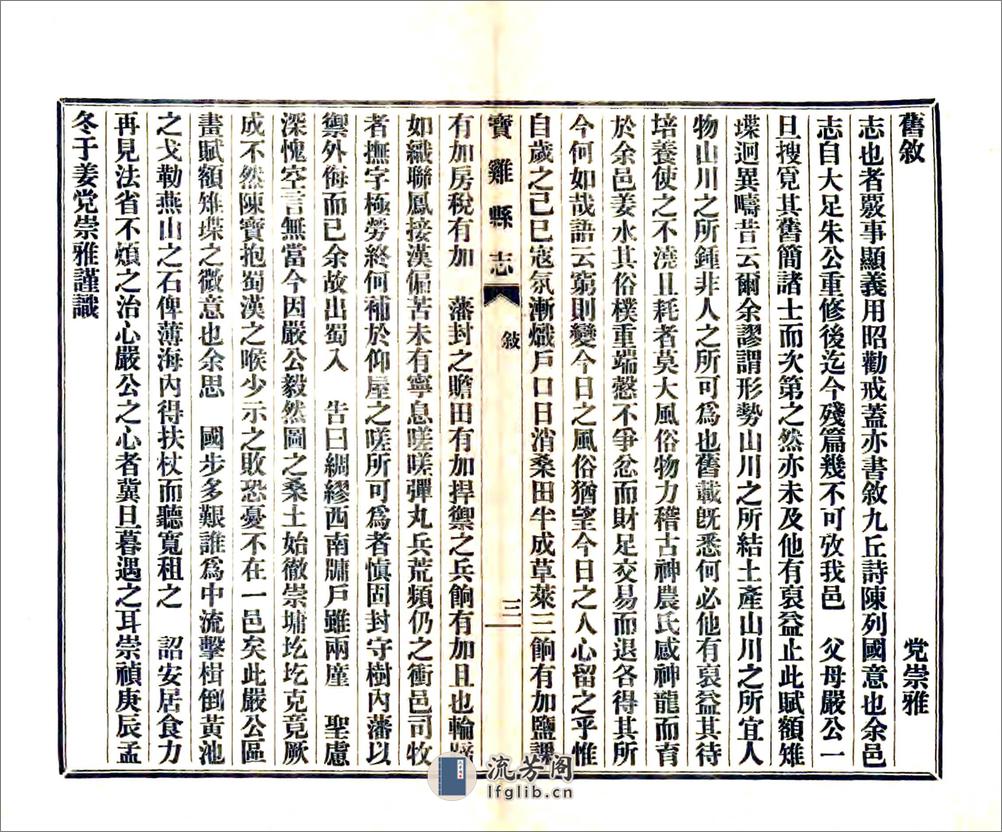 舊敘 党崇雅
志也者覈事顯義用昭勸戒蓋亦書敘九丘詩陳列國意也余邑
志自大足朱公重修後迄今殘篇幾不可攷我邑 父母嚴公一
旦搜覓其舊簡諸士而次第之然亦未及他有裒益止此賦額雉
堞迥異疇昔云爾余謬謂形勢山川之所結土產山川之所宜人
物山川之所鍾非人之所可爲也舊載旣悉何必他有裒益其待
培養使之不澆且耗者莫大風俗物力稽古神農氏感神龍而育
於余邑姜水其俗樸重端慤不爭忿而財足交易而退各得其所
今何如哉語云窮則變今日之風俗猶望今日之人心留之乎惟
自歲之己巳寇氛漸熾戶口日消桑田半成草萊三餉有加鹽課
寶雞縣志 敘 三
有加房稅有加 藩封之贍田有加捍禦之兵餉有加且也輪蹄
如織聯鳳接漢偏苦未有寧息嗟嗟彈丸兵荒頻仍之衝邑司牧
者撫字極勞終何補於仰屋之嗟所可爲者慎固封守樹內藩以
禦外侮而已余故出蜀入 告曰綢繆西南牖戶雖兩廑 聖慮
深愧空言無當今因嚴公毅然圖之桑土始徹崇墉圪圪克竟厥
成不然陳寶抱蜀漢之喉少示之敗恐憂不在一邑矣此嚴公區
畫賦額雉堞之微意也余思 國步多艱誰爲中流擊楫倒黃池
之戈勒燕山之石俾薄海內得扶杖而聽寬租之 詔安居食力
再見法省不煩之治心嚴公之心者冀旦暮遇之耳崇禎庚辰孟
冬于姜党崇雅謹識
流芳閣
lfglib.cn